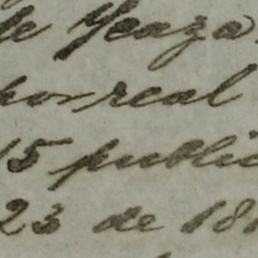 de Yeaza
por real
15 public
23 de 181